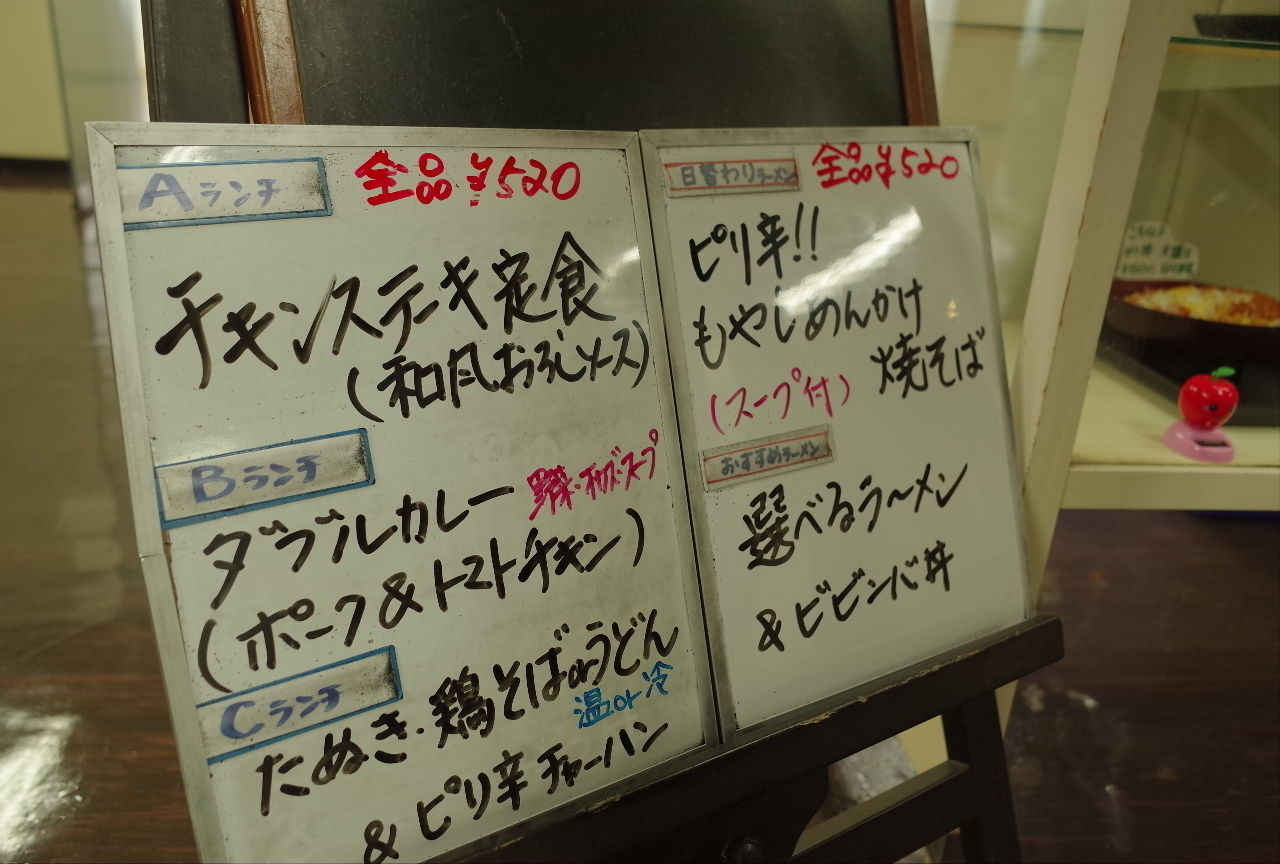 Aランチ
全品¥520
チキンステーキ定食
(和風おろしソース)
Bランチ
ダブルカレー
野菜・チーズ・スープ
(ポーク&トマトチキン)
Cランチ
たぬき・鶏そばorうどん
温or冷
&ピリ辛チャーハン
日替わりラーメン
全品¥520
ピリ辛!!
もやしめんかけ
焼そば
(スープ付)
おすすめラーメン
選べるラーメン
&ビビンバ丼